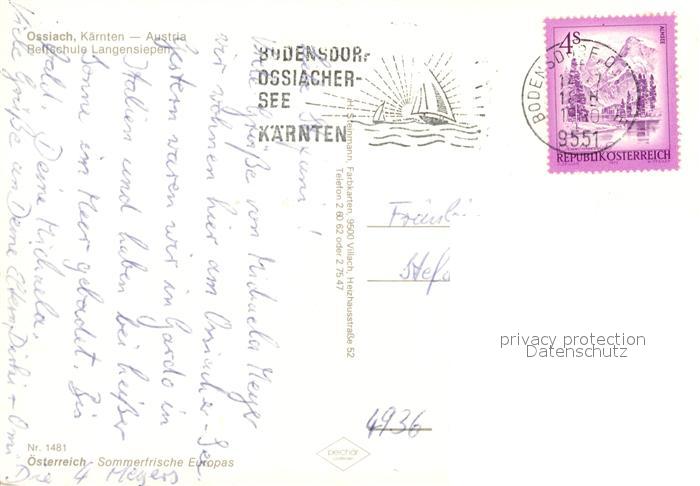 Ossiach, Kärnten — Austria
Reitschule Langensiepen
BODENSDORF
OSSIACHER-
SEE
KÄRNTEN
BODENSDORF
9551
4S
ALMSEE
REPUBLIK ÖSTERREICH
Liebe
Viele Grüße von Michaela Meyer
wir wohnen hier am Ossiacher-See.
Gestern waren wir in Garda in
Italien und haben bei heißer
Sonne im Meer gebadet. Bis
bald. Deine Michaela.
Viele Grüße an Deine Eltern, + Omi
Die 4 Meyers
Steinmann, Farbkarten, 9500 Villach, Heizhausstraße 52
Telefon 2 60 62 oder 2 75 47
Fräulei
Stefa
4936
privacy protection
Datenschutz
Nr. 1481
Österreich - Sommerfrische Europas